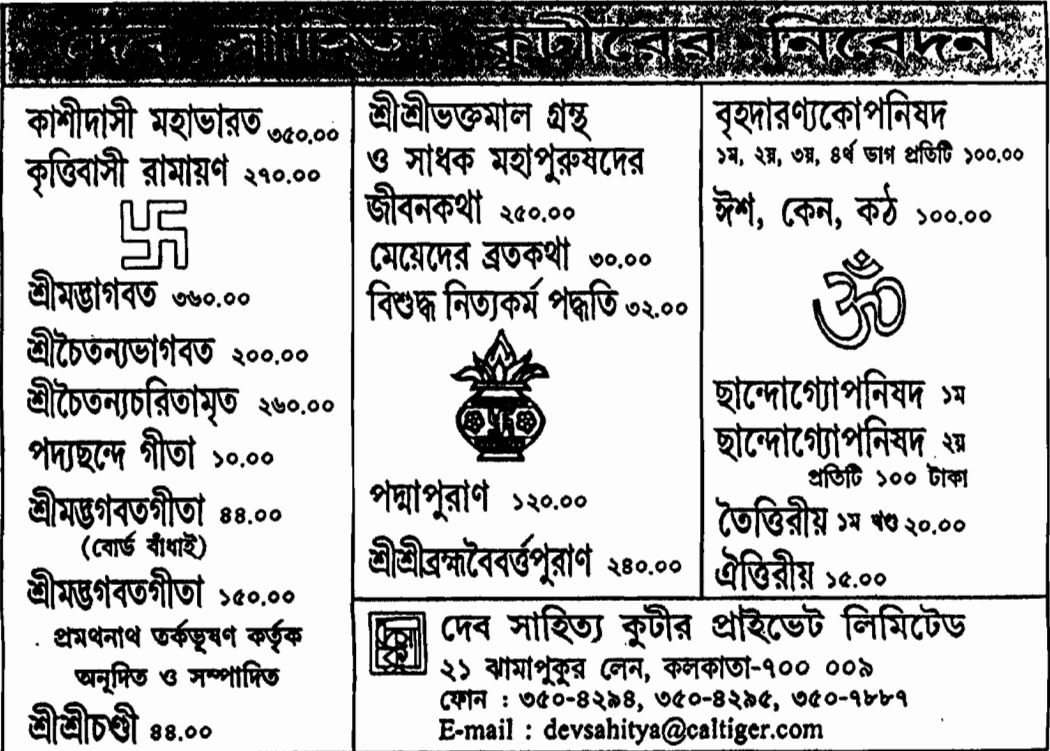 দেব সাহিত্য কুটীরের নিবেদন
কাশীদাসী মহাভারত ৩৫০.০০
কৃত্তিবাসী রামায়ণ ২৭০.০০
শ্রীমদ্ভাগবত ৩৬০.০০
শ্রীচৈতন্যভাগবত ২০০.০০
শ্রীচৈতন্যচরিতামৃত ২৬০.০০
পদ্যছন্দে গীতা ১০.০০
শ্রীমদ্ভগবতগীতা ৪৪.০০
(বোর্ড বাঁধাই)
শ্রীমদ্ভগবতগীতা ১৫০.০০
প্রমথনাথ তর্কভূষণ কর্তৃক
অনূদিত ও সম্পাদিত
শ্রীশ্রীচণ্ডী ৪৪.০০
শ্রীশ্রীভক্তমাল গ্রন্থ
ও সাধক মহাপুরুষদের
জীবনকথা ২৫০.০০
মেয়েদের ব্রতকথা ৩০.০০
বিশুদ্ধ নিত্যকর্ম পদ্ধতি ৩২.০০
পদ্মাপুরাণ ১২০.০০
শ্রীশ্রীব্রহ্মবৈবর্ত্তপুরাণ ২৪০.০০
বৃহদারণ্যকোপনিষদ
১ম, ২য়, ৩য়, ৪র্থ ভাগ প্রতিটি ১০০.০০
ঈশ, কেন, কঠ ১০০.০০
ওঁ
ছান্দোগ্যোপনিষদ ১ম
ছান্দোগ্যোপনিষদ ২য়
প্রতিটি ১০০ টাকা
তৈত্তিরীয় ১ম খণ্ড ২০.০০
ঐত্তিরীয় ১৫.০০
দেব সাহিত্য কুটীর প্রাইভেট লিমিটেড
২১ ঝামাপুকুর লেন, কলকাতা-৭০০ ০০৯
ফোন : ৩৫০-৪২৯৪, ৩৫০-৪২৯৫, ৩৫০-৭৮৮৭
E-mail : devsahitya@caltiger.com